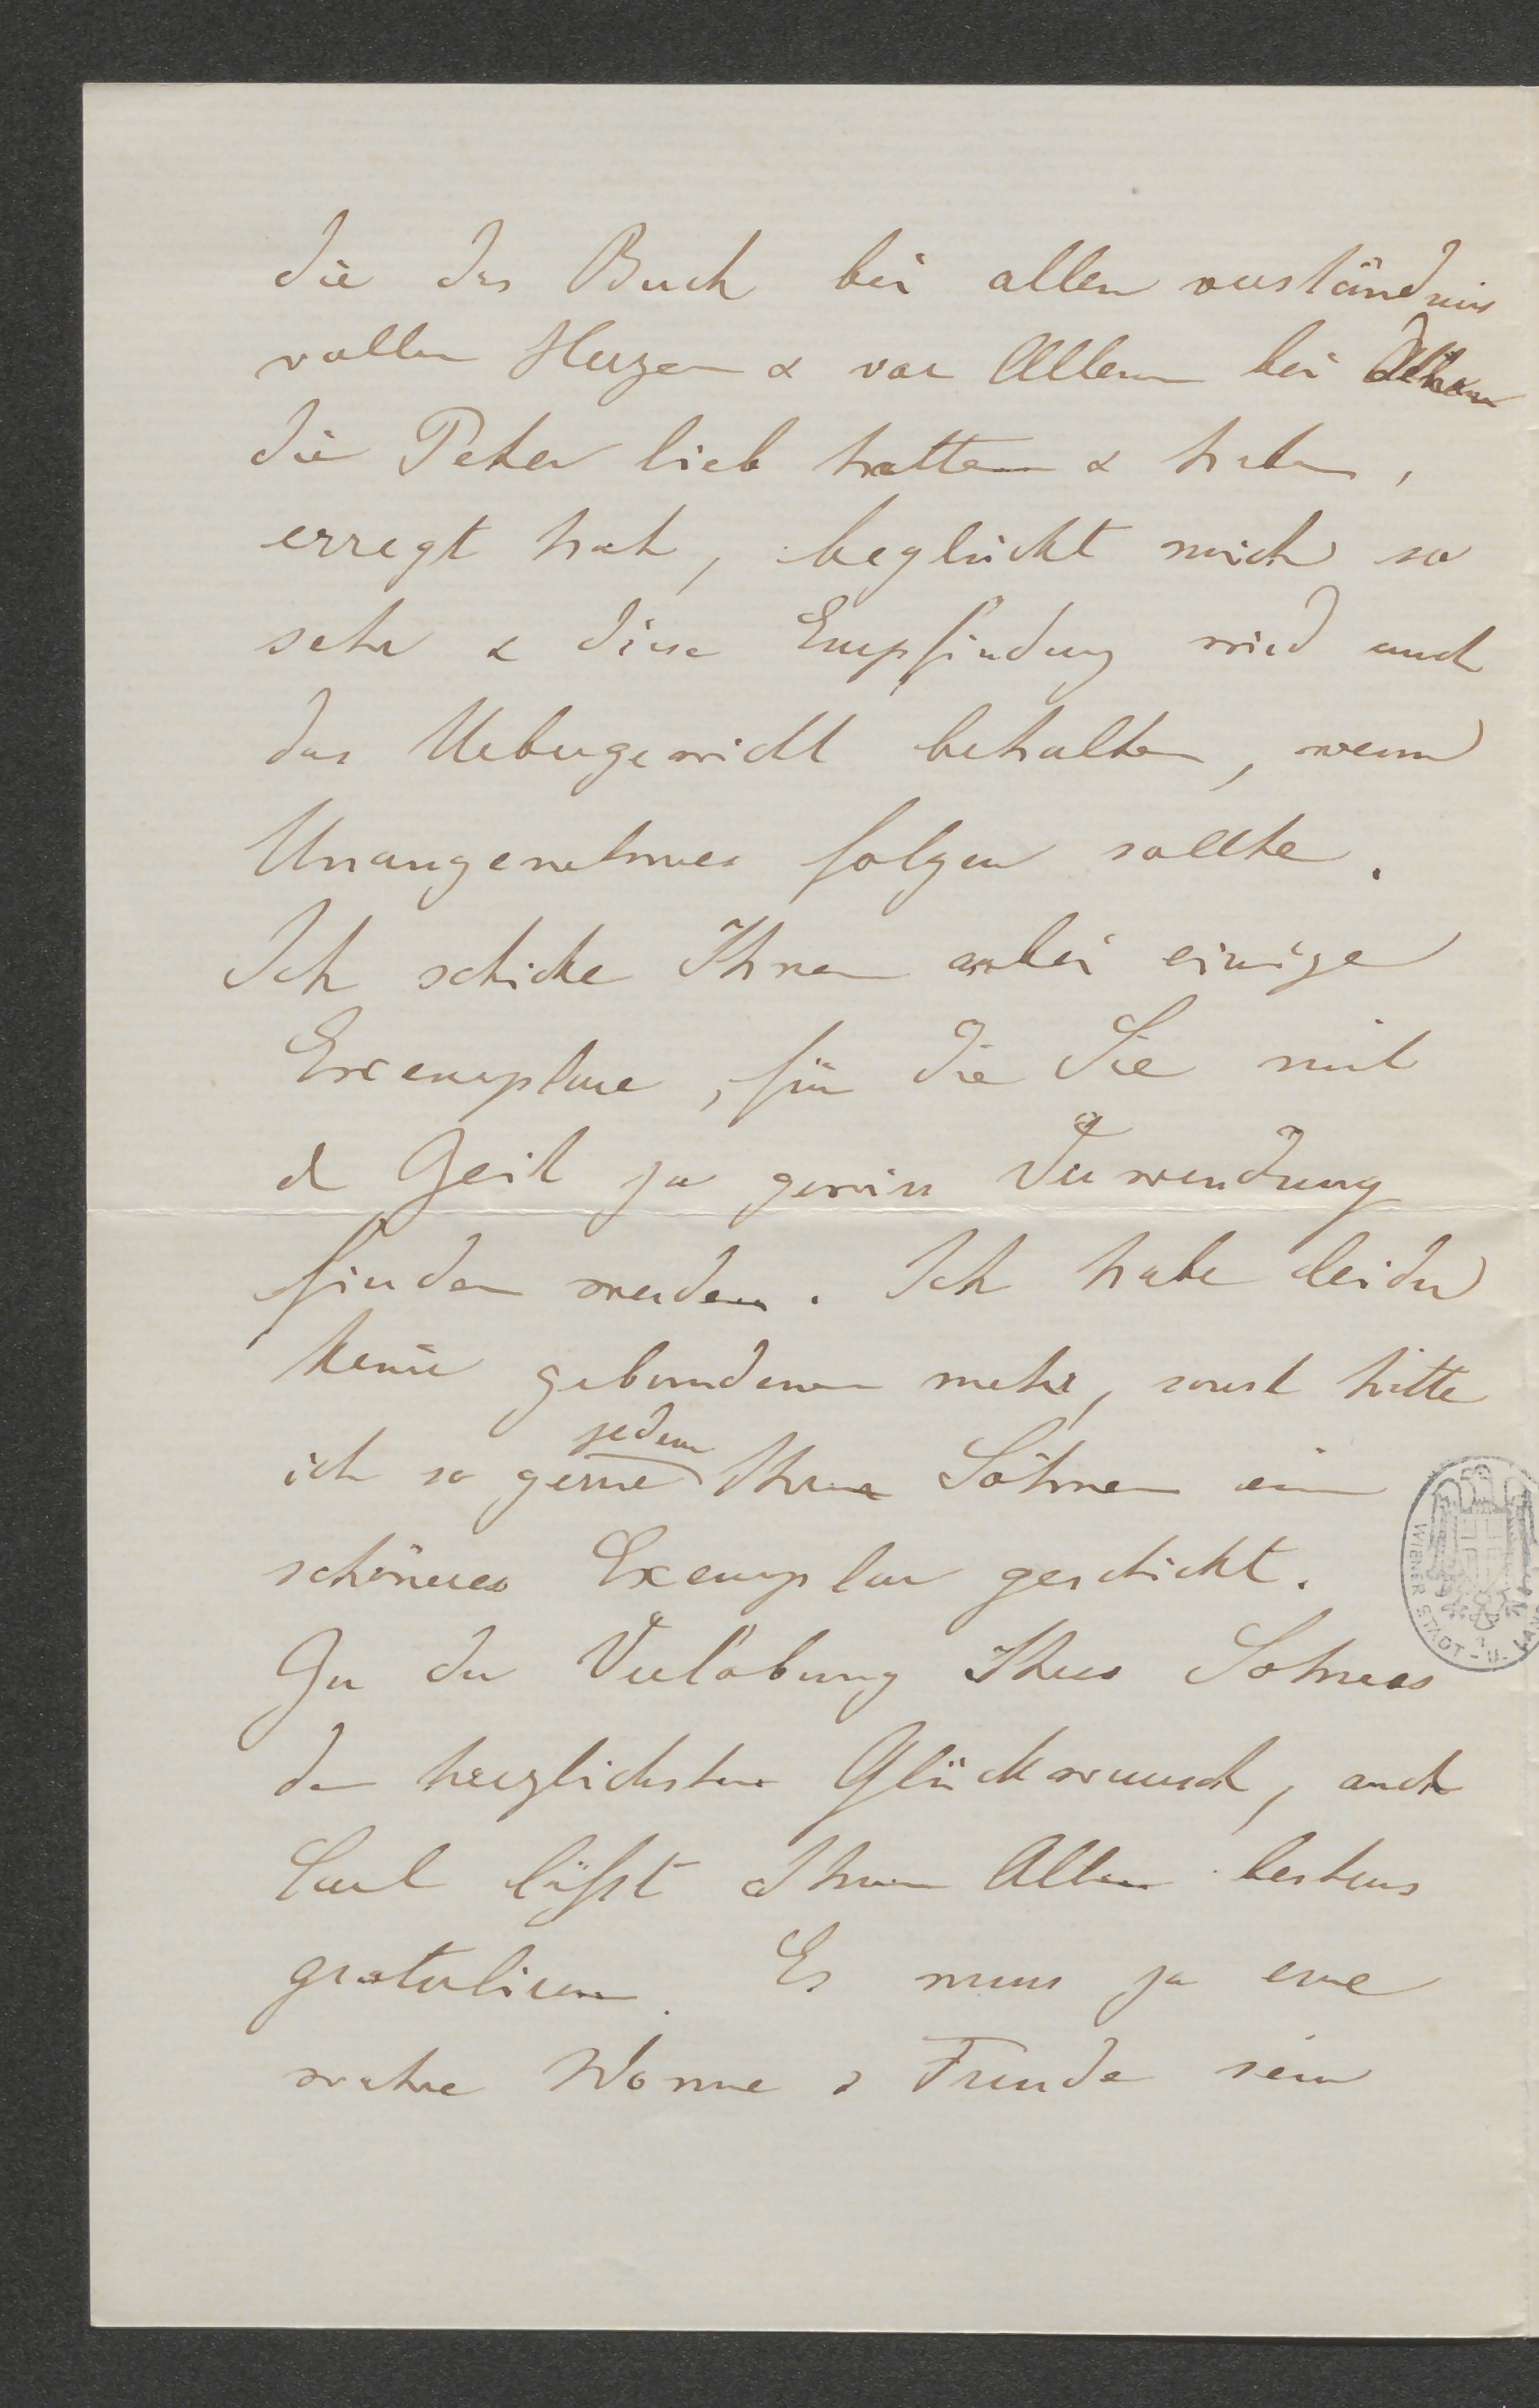 die das Buch bei allen verständnis
vollen Herzen & vor Allem bei
die Peter lieb hatten & haben,
erregt hat, beglückt mich so
sehr & diese Empfindung wird auch
das Uebergewicht behalten, wenn
Unangenehmes folgen sollte.
Ich schicke Ihnen anbei einige
Exemplare, für die Sie mit
d Zeit ja gewiss Verwendung
finden werden. Ich habe leider
keine gebundenen mehr, sonst hätte
jedem
ich so gerne Ihrer Söhne ein
schöneres Exemplar geschickt.
Zu der Verlobung Ihres Sohnes
den herzlichsten Glückwunsch, auch
Carl läßt Ihnen Allen bestens
gratuliren. Es muss ja eine
wahre Wonne & Freude sein
WIENER STADT - U.